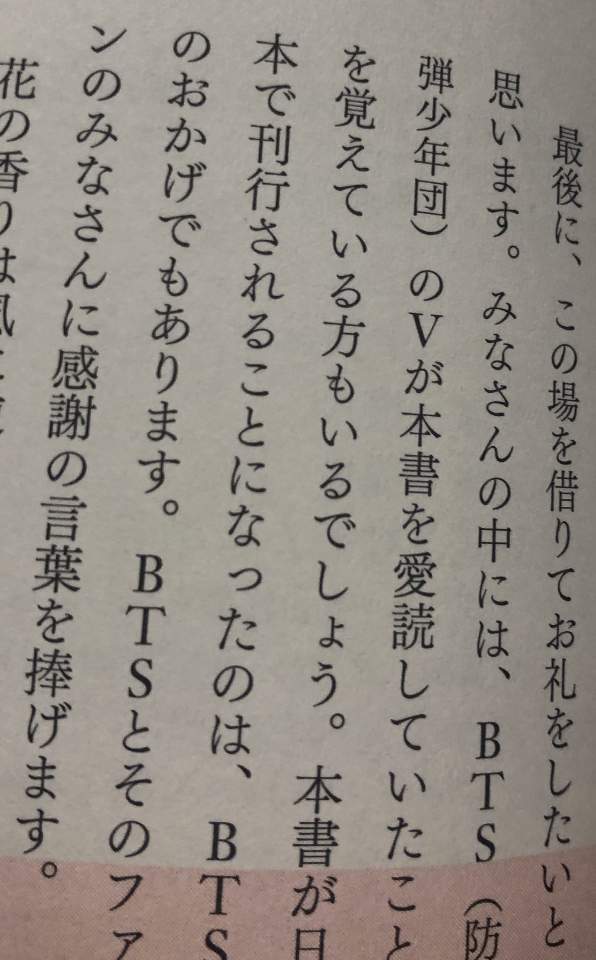 最後に、この場を借りてお礼をしたいと
思います。みなさんの中には、BTS（防
弾少年団）のVが本書を愛読していたこと
を覚えている方もいるでしょう。本書が日
本で刊行されることになったのは、BTS
のおかげでもあります。BTSとそのファ
ンのみなさんに感謝の言葉を捧げます。
花の香りは風に